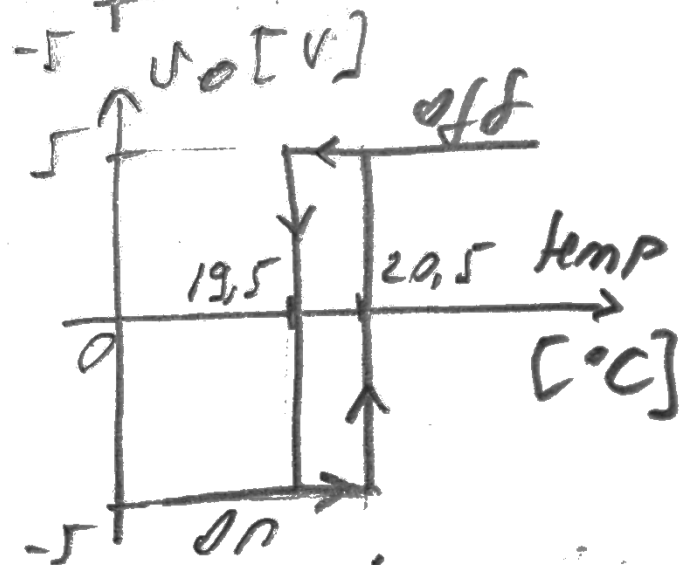 -5
υo [V]
off
5
19,5
20,5
temp
0
[°C]
-5
on